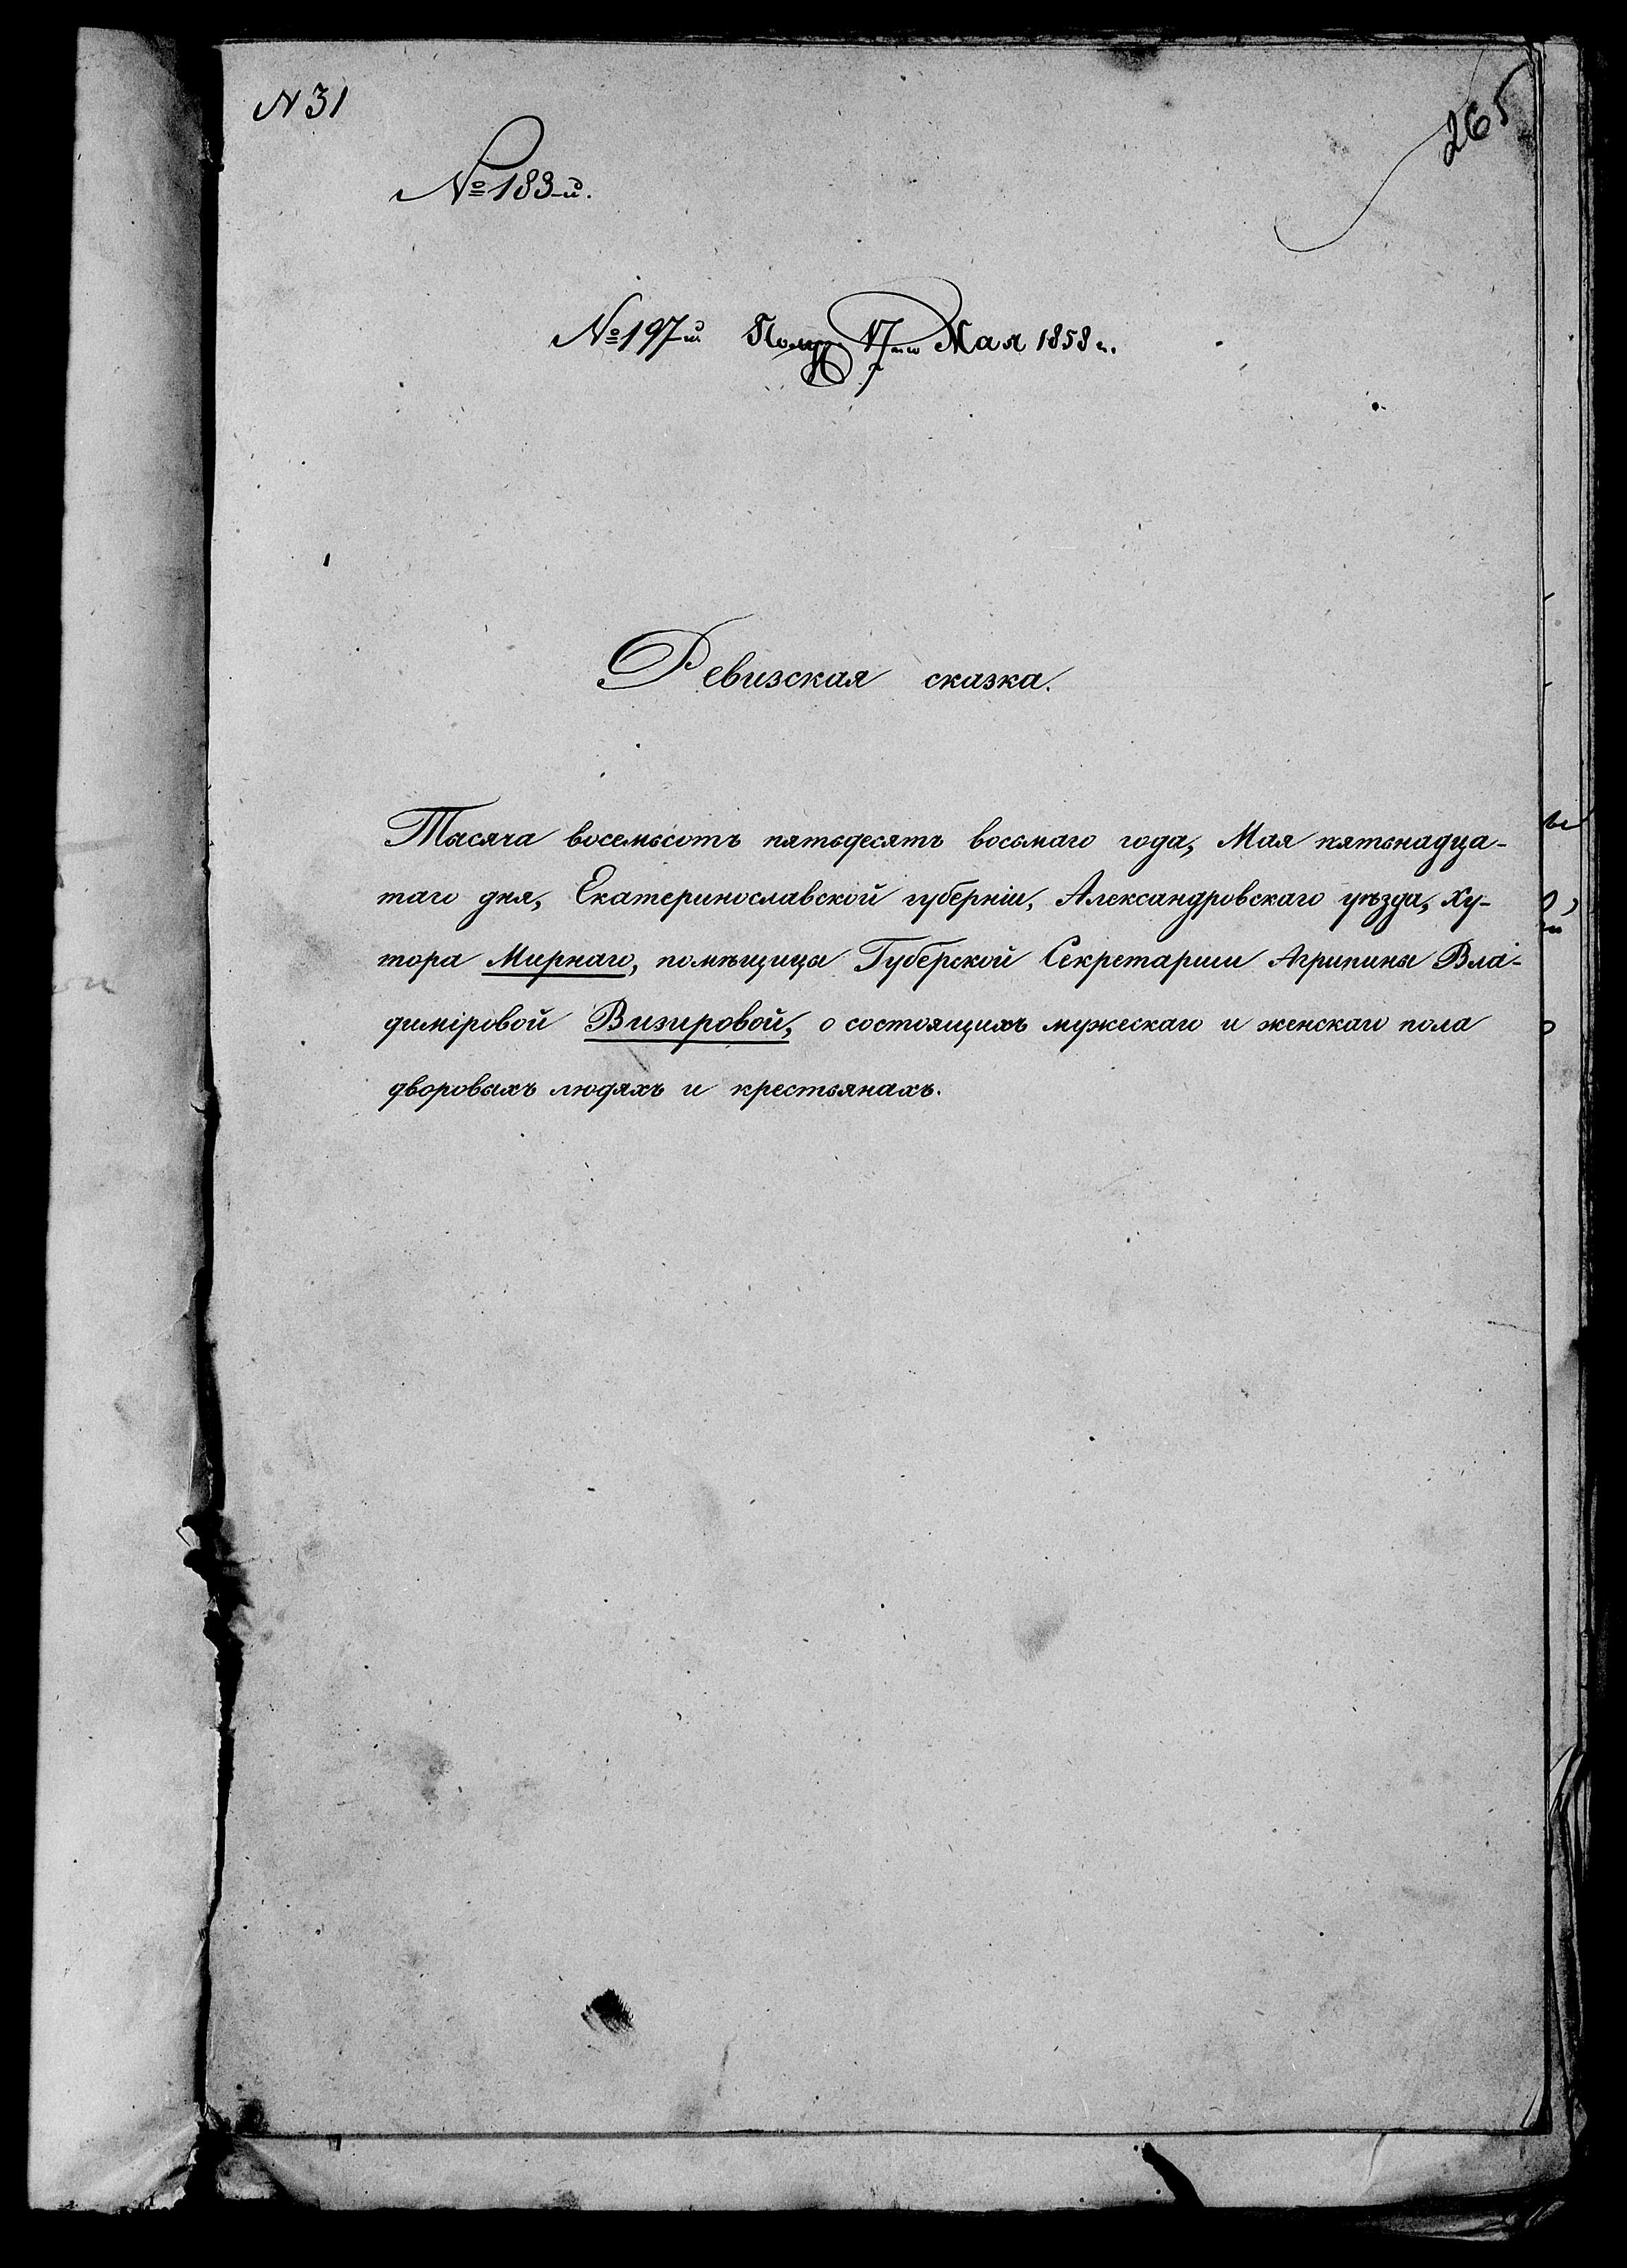 N 31
265
№ 183-й.
№ 197-й Получ. 17-го Мая 1858 г.
Ревизская сказка.
Тысяча восемьсотъ пятьдесятъ восьмаго года, Мая пятьнадца-
таго дня, Екатеринославской губерніи, Александровскаго уѣзда, Ху-
тора Мирнаго, помѣщицы Губерской Секретарши Агрипины Вла-
диміровой Визировой, о состоящихъ мужескаго и женскаго пола
дворовыхъ людяхъ и крестьянахъ.